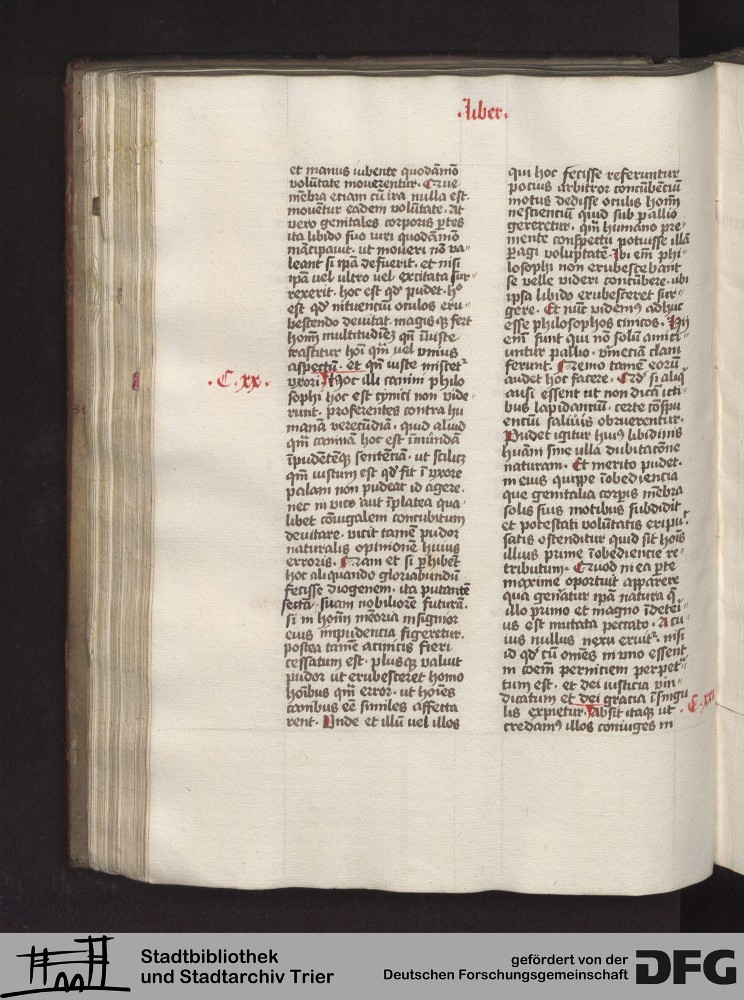 ·Liber·
et manus iubente quodãmõ
volũtate mouerentur· Que
mẽbra etiam cũ ira nulla est·
mouẽtur eadem volũtate· At
vero genitales corporis ꝑtes
ita libido suo iuri quodãmõ
mãcipauit· ut moueri nõ va-
leant si ipã defuerit· et nisi
ipã vel ultro vel excitata sur-
rexerit· hoc est qđ pudet· hº
est qđ intuenciũ oculos eru-
bescendo deuitat· magisqꝫ fert
homĩ multitudineꝫ qñ iniuste
irascitur homĩ qm̃ vel vnius
aspectũ· et qñ iuste miscet᷑
·C·xx·
vxori· Hoc illi canini philo
sophi hoc est cynici non vide
runt· proferentes contra hu
manã verecũdiã· quid aliud
qm̃ caninã hoc est ĩmundã
ĩpudẽtẽqꝫ sentẽciã· ut scilicꝫ
qm̃ iustum est qđ fit ĩ vxore
palam non pudeat id agere·
nec in vico aut ĩ platea qua
libet cõiugalem concubitum
deuitare· vicit tamẽ pudor
naturalis opinionẽ huius
erroris· Nam et si ꝑhibẽt
hoc aliquando gloriabundũ
fecisse diogenem· ita putantẽ
sectã suam nobiliorẽ futurã·
si in homĩ mẽoria insignior
eius impudencia figeretur·
postea tamẽ acinicis fieri
cessatum est· plusqꝫ valuit
pudor ut erubesceret homo
hoĩbus qm̃ error· ut hoĩes
canibus eẽ similes affecta
rent· Vnde et illũ vel illos
qui hoc fecisse referuntur
pocius arbitror concũbenciũ
motus dedisse oculis homĩ
nescienciũ quid sub pallio
gereretur· qm̃ humano pre-
mente conspectu potuisse illã
ꝑagi voluptatẽ· Ibi em̃ phi-
losophi non erubescebant
se velle videri concũbere· ubi
ipsa libido erubesceret sur-
gere· Et nũc videmꝰ adhuc
esse philosophos cinicos· Hij
em̃ sunt qui nõ solũ amici-
untur pallio· verũeciã clauã
ferunt· Nemo tamẽ eorũ
audet hoc facere· Qđ si aliqͥ
ausi essent ut non dicã icti-
bus lapidanciũ· certe cõspu-
enciũ saliuis obruerentur·
Pudet igitur huiꝰ libidinis
huãm sine ulla dubitacõne
naturam· Et merito pudet·
in eius quippe ĩobediencia
que genitalia corpis mẽbra
solis suis motibus subdidit
et potestati volũtatis eripuͥt·
satis ostenditur quid sit hoĩs
illius prime ĩobediencie re-
tributum· Quod in ea ꝑte
maxime oportuit apparere
qua genẽatur ipã natura q̃
illo primo et magno ĩ deteri-
us est mutata peccato· A cu-
ius nullus nexu eruit᷑· nisi
id qđ cũ om̃es in vno essent
in cõem perniciem perpetͣ-
tum est· et dei iusticia vin-
dicatum et dei gracia ĩ singu
lis expietur· Absit itaqꝫ ut
·C·xxi
credamꝰ illos coniuges in
Stadtbibliothek
und Stadtarchiv Trier
gefördert von der
Deutschen Forschungsgemeinschaft
DFG